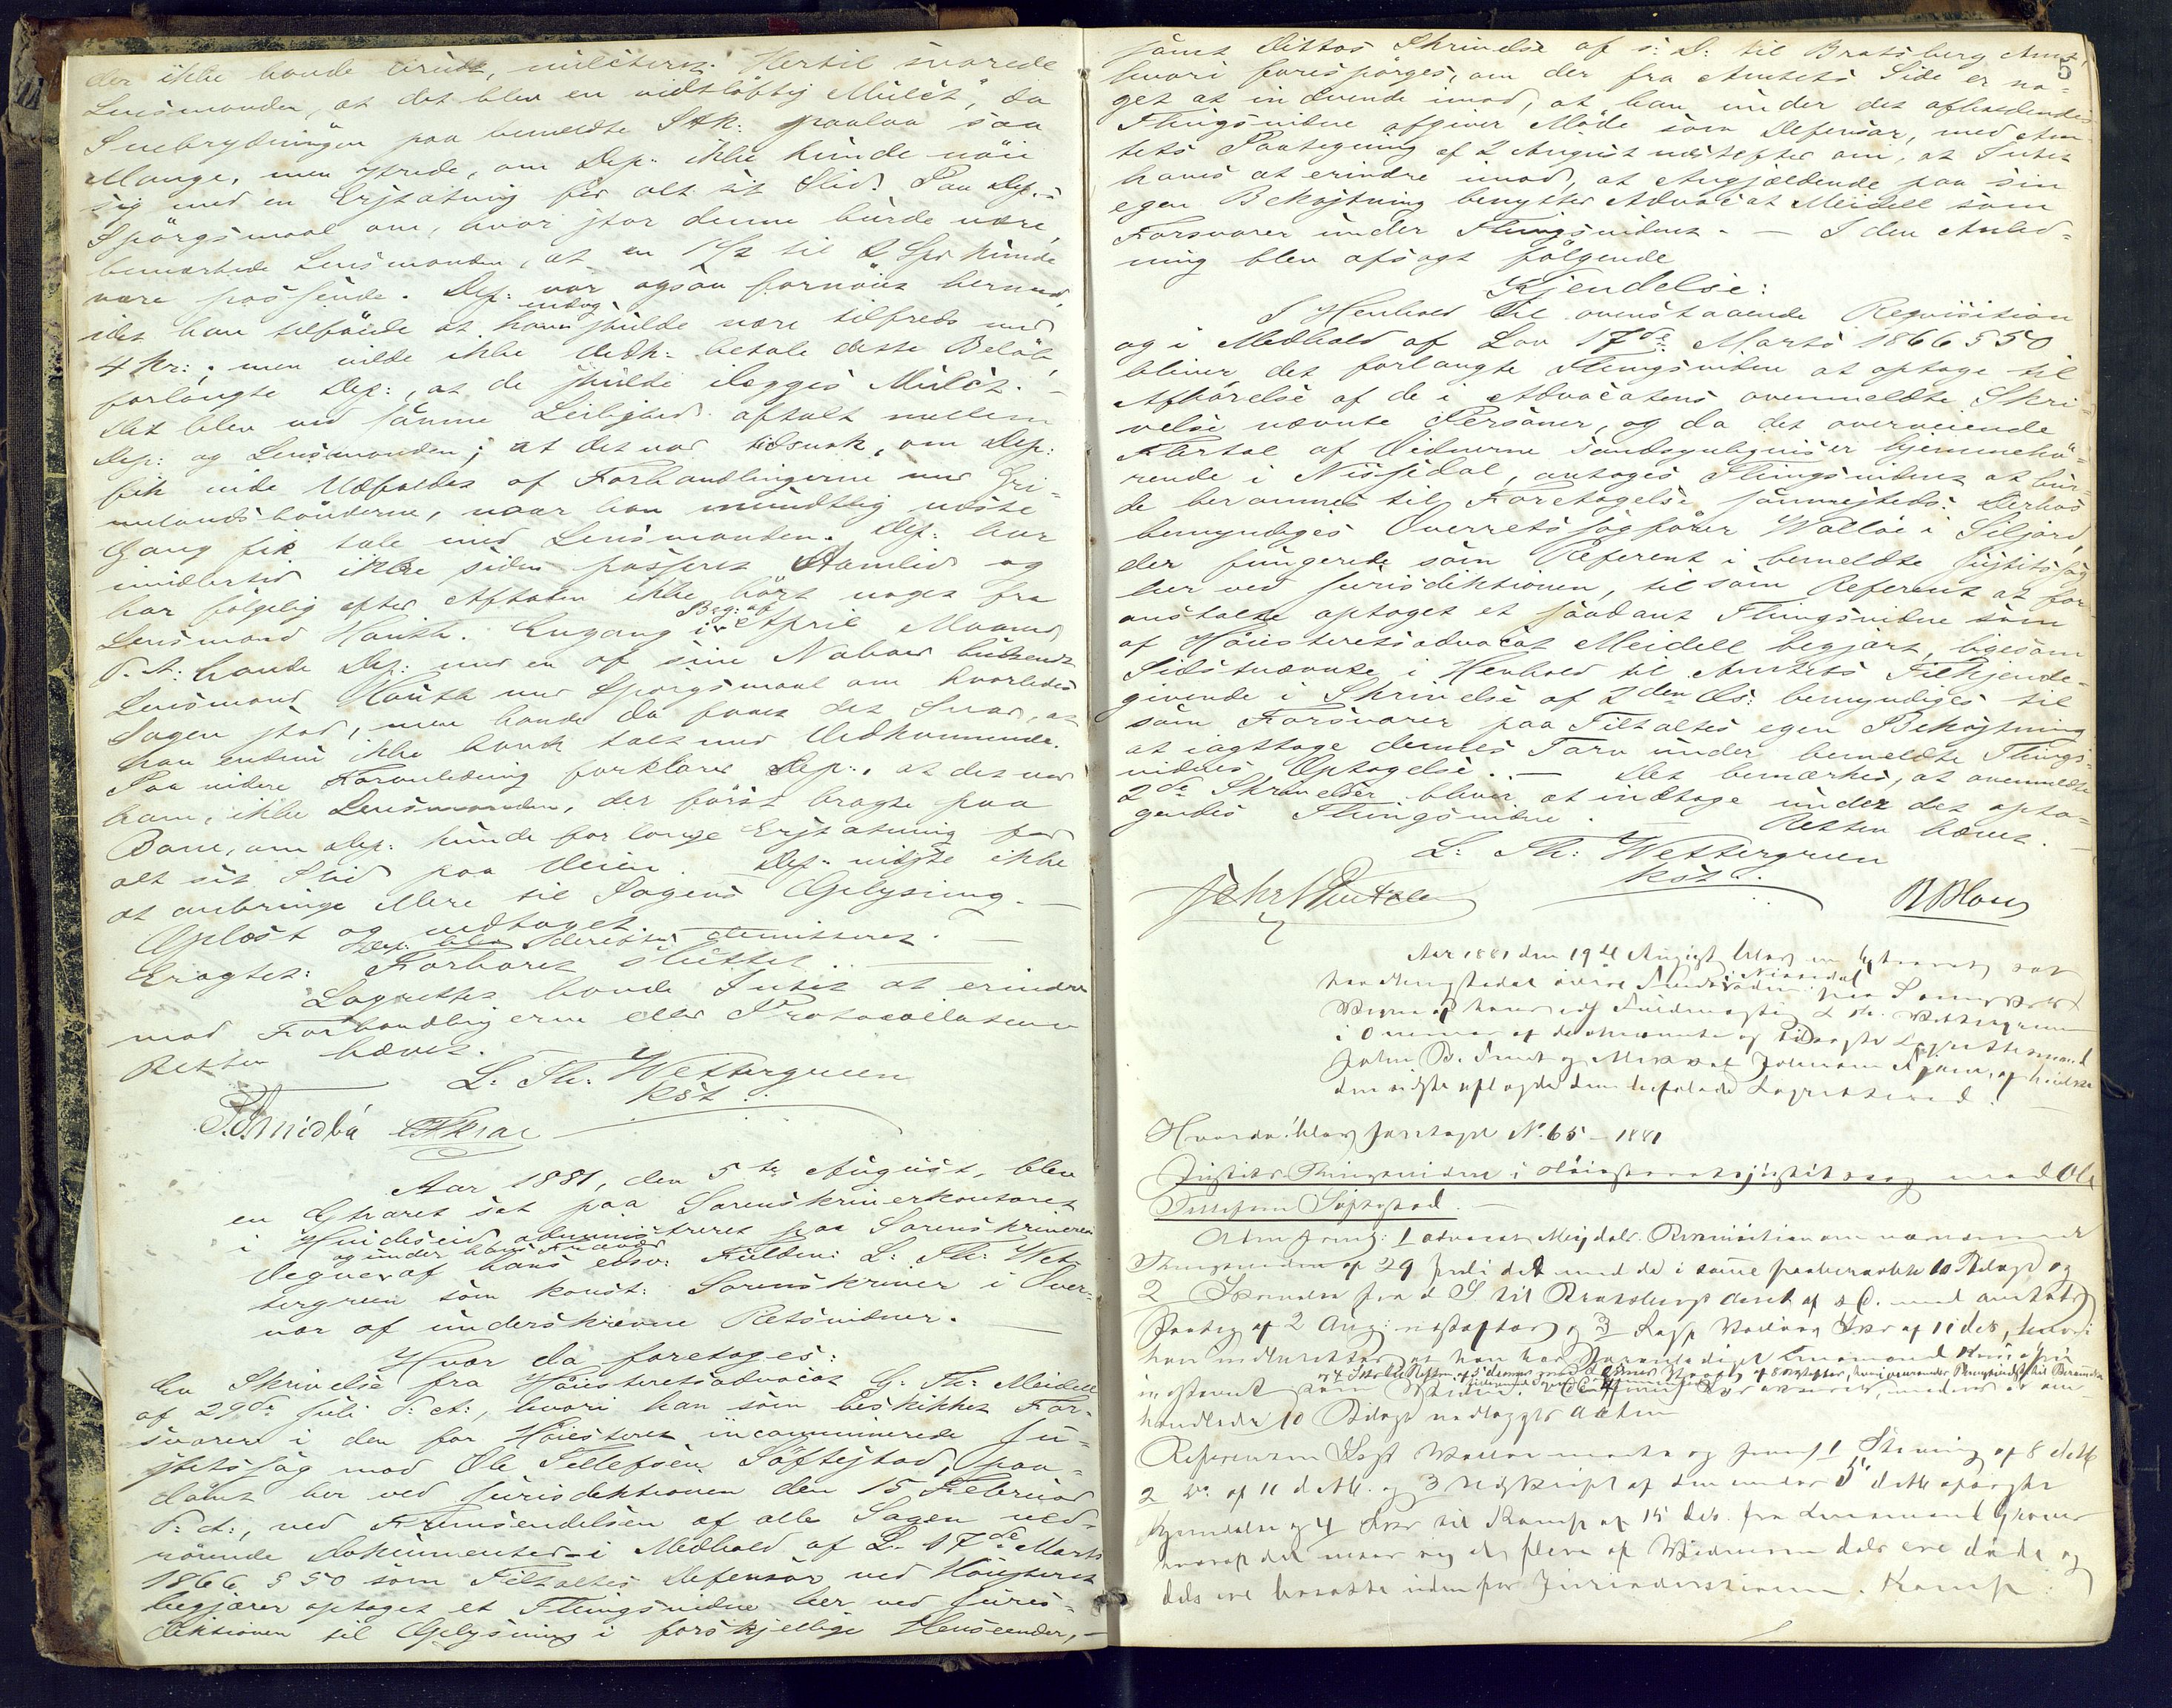 der ikke havde brudt, mulcteret. Hertil svarede
Lensmanden, at det blev en vidtløftig Mulct, da
Snebrydningen paa bemeldte Stk: paalaa saa
Mange, men ytrede, om Dep: ikke kunde nöie
sig med en Erstatning for alt sit Slid. Paa Dep:s
Spörgsmaal om, hvor stor denne burde være,
bemærkede Lensmanden, at en 1 1/2 til 2 Spd kunde
være passende. Dep: var ogsaa fornöiet hermed,
idet han tilföiede at han endog skulde være tilfreds med
4 Kr:, men vilde ikke Vedk: betale dette Belöb,
forlangte Dep:, at de skulde ilægges Mulct. —
Det blev ved samme Leilighed aftalt mellem
Dep: og Lensmanden, at det var tidsnok, om Dep:
fik vide Udfaldet af Forhandlingerne med Gri-
melandsbönderne, naar han mundtlig næste
Gang fik tale med Lensmanden. Dep: har
imidlertid ikke siden passeret Aamlid og
har fölgelig efter Aftalen ikke hört noget fra
Lensmand Hauth. Engang i Beg: af April Maaned
d. A: havde Dep: med en af sine Naboer budsendt
Lensmand Hauth med Spörgsmaal om hvorledes
Sagen stod, men havde da faaet det Svar, at
han endnu ikke havde talt med Vedkommende.
Paa videre Foranledning forklarer Dep:, at det var
ham, ikke Lensmanden, der först bragte paa
Bane, om Dep: kunde forlange Erstatning for
alt sit Slid paa Veien. — Dep: vidste ikke
at anbringe Mere til Sagens Oplysning. —
Oplæst og vedtaget.
Dep: blev derefter demitteret. —
Eragtet: Forhöret sluttet.
Lagrettet havde Intet at erindre
mod Forhandlingerne eller Protocollationen
Retten hævet.
L. Th: Wettergreen
kst.
Aar 1881, den 5te August, blev
en Extraret sat paa Sorenskriverkontoret
i Hvideseid, administreret for Sorenskriveren
og under hans Fravær
Wegner af hans edsv: Fuldm: L: Th: Wet-
tergreen som konst: Sorenskriver i Over-
vær af underskrevne Retsvidner. —
Hvor da foretoges:
En Skrivelse fra Höiesteretsadvocat G. Th: Meidell
af 29de Juli d: A:, hvori han som beskikket For-
svarer i den for Höiesteret incaminerede Ju-
stitssag mod Ole Tellefsen Söftestad, paa-
dömt her ved Jurisdiktionen den 15 Februar
d: A:, ved Fremsendelsen af alle Sagen ved-
rörende Dokumenter i Medhold af L. 17de Marts
1866 § 50 som Tiltaltes Defensor ved Höiesteret
begjærer optaget et Thingsvidne her ved Juris-
diktionen til Oplysning i forskjellige Henseender, —
5
samt Dittos Skrivelse af s: D: til Bratsberg Amt,
hvori forespörges, om der fra Amtets Side er no-
get at indvende imod, at han under det afholdendes
Thingsvidne afgiver Möde som Defensor, med Am-
tets Paategning af 2 August næstefter om, at Intet
haves at erindre imod, at Angjældende paa sin
egen Bekostning benytter Advocat Meidell som
Forsvarer under Thingsvidnet. — I den Anled-
ning blev afsagt fölgende
Kjendelse:
I Henhold til ovenstaaende Requisition
og i Medhold af Lov 17de Marts 1866 § 50
bliver det forlangte Thingsvidne at optage til
Afhörelse af de i Advocatens ovenmeldte Skri-
velse nævnte Personer, og da det overveiende
Flertal af Vidnerne sandsynligvis er hjemmehö-
rende i Nissedal, antages Thingsvidnet at bur-
de berammes til Foretagelse sammesteds. Derhos
bemyndiges Overretssagförer Walløe i Siljord,
der fungerede som Referent i bemeldte Justitssag
her ved Jurisdiktionen, til som Referent at for-
anstalte optaget et saadant Thingsvidne som
af Höiesteretsadvocat Meidell begjært, ligesom
Sidstnævnte i Henhold til Amtets Tilkjende-
givende i Skrivelse af 2den ds: bemyndiges til
som Forsvarer paa Tiltaltes egen Bekostning
at iagttage dennes Tarv under bemeldte Things-
vidnes Optagelse. — Det bemærkes, at ovenmeldte
2de Skrivelser bliver at indtage under det opta-
gendes Thingsvidne. — Retten hævet. —
L: Th: Wettergreen
kst.
Aar 1881 den 19de August blev en Extraret sat
i Nissedal
i Overvær af de
Hvorda blev foretaget No 65 – 1881
Justits Thingsvidne i Höiesteretsjustitssag mod Ole
Tellefsen Söftestad. —
Thingsvidne af 29 Juli d.A. med de i samme paaberaabte 10 Bilage og
2 Skrivelse fra d. S. til Bratsbergs Amt af s. D. med Amtets
Paateg af 2 Aug: næstefter og 3 Sagf Walløes Skr af 11 ds, hvori
10 Bilage vedlægges Acten
Referenten Sagf Walløe mødte og freml 1 Stevning af 8 d. M
2 Do af 11 d. M. og 3 Udskrift af den under 5 d. M afsagte
Kjendelse og 4 Skr til Komp af 15 ds. fra Lensmand
hvoraf det viser sig at flere af Vidnerne dels ere döde og
dels ere bosatte udenfor Jurisdictionen. Komp: